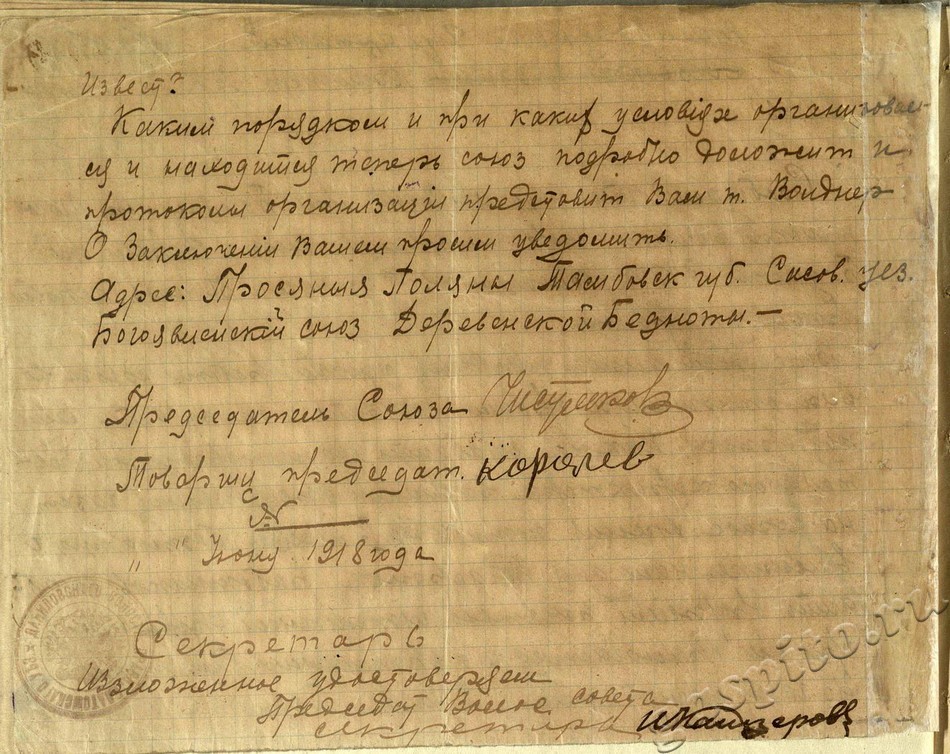 Извест?
Каким порядком и при каких условіях организовал-
ся и находится теперь союз подробно доложит и
протоколы организаціи предствит Вам т. Волднер
О Заключеніи Вашем просим уведомить.
Адрес: Просяныя Поляны Тамбовск губ. Сасов. уез.
Богоявленскій союз Деревенской Бедноты.—
Председатель Союза
Товарищ председат. Королев
№
„ „ Июня 1918 года
Секретарь
Изложенное удостоверяем
Председат Волос совета
секретарь
gaspito.ru